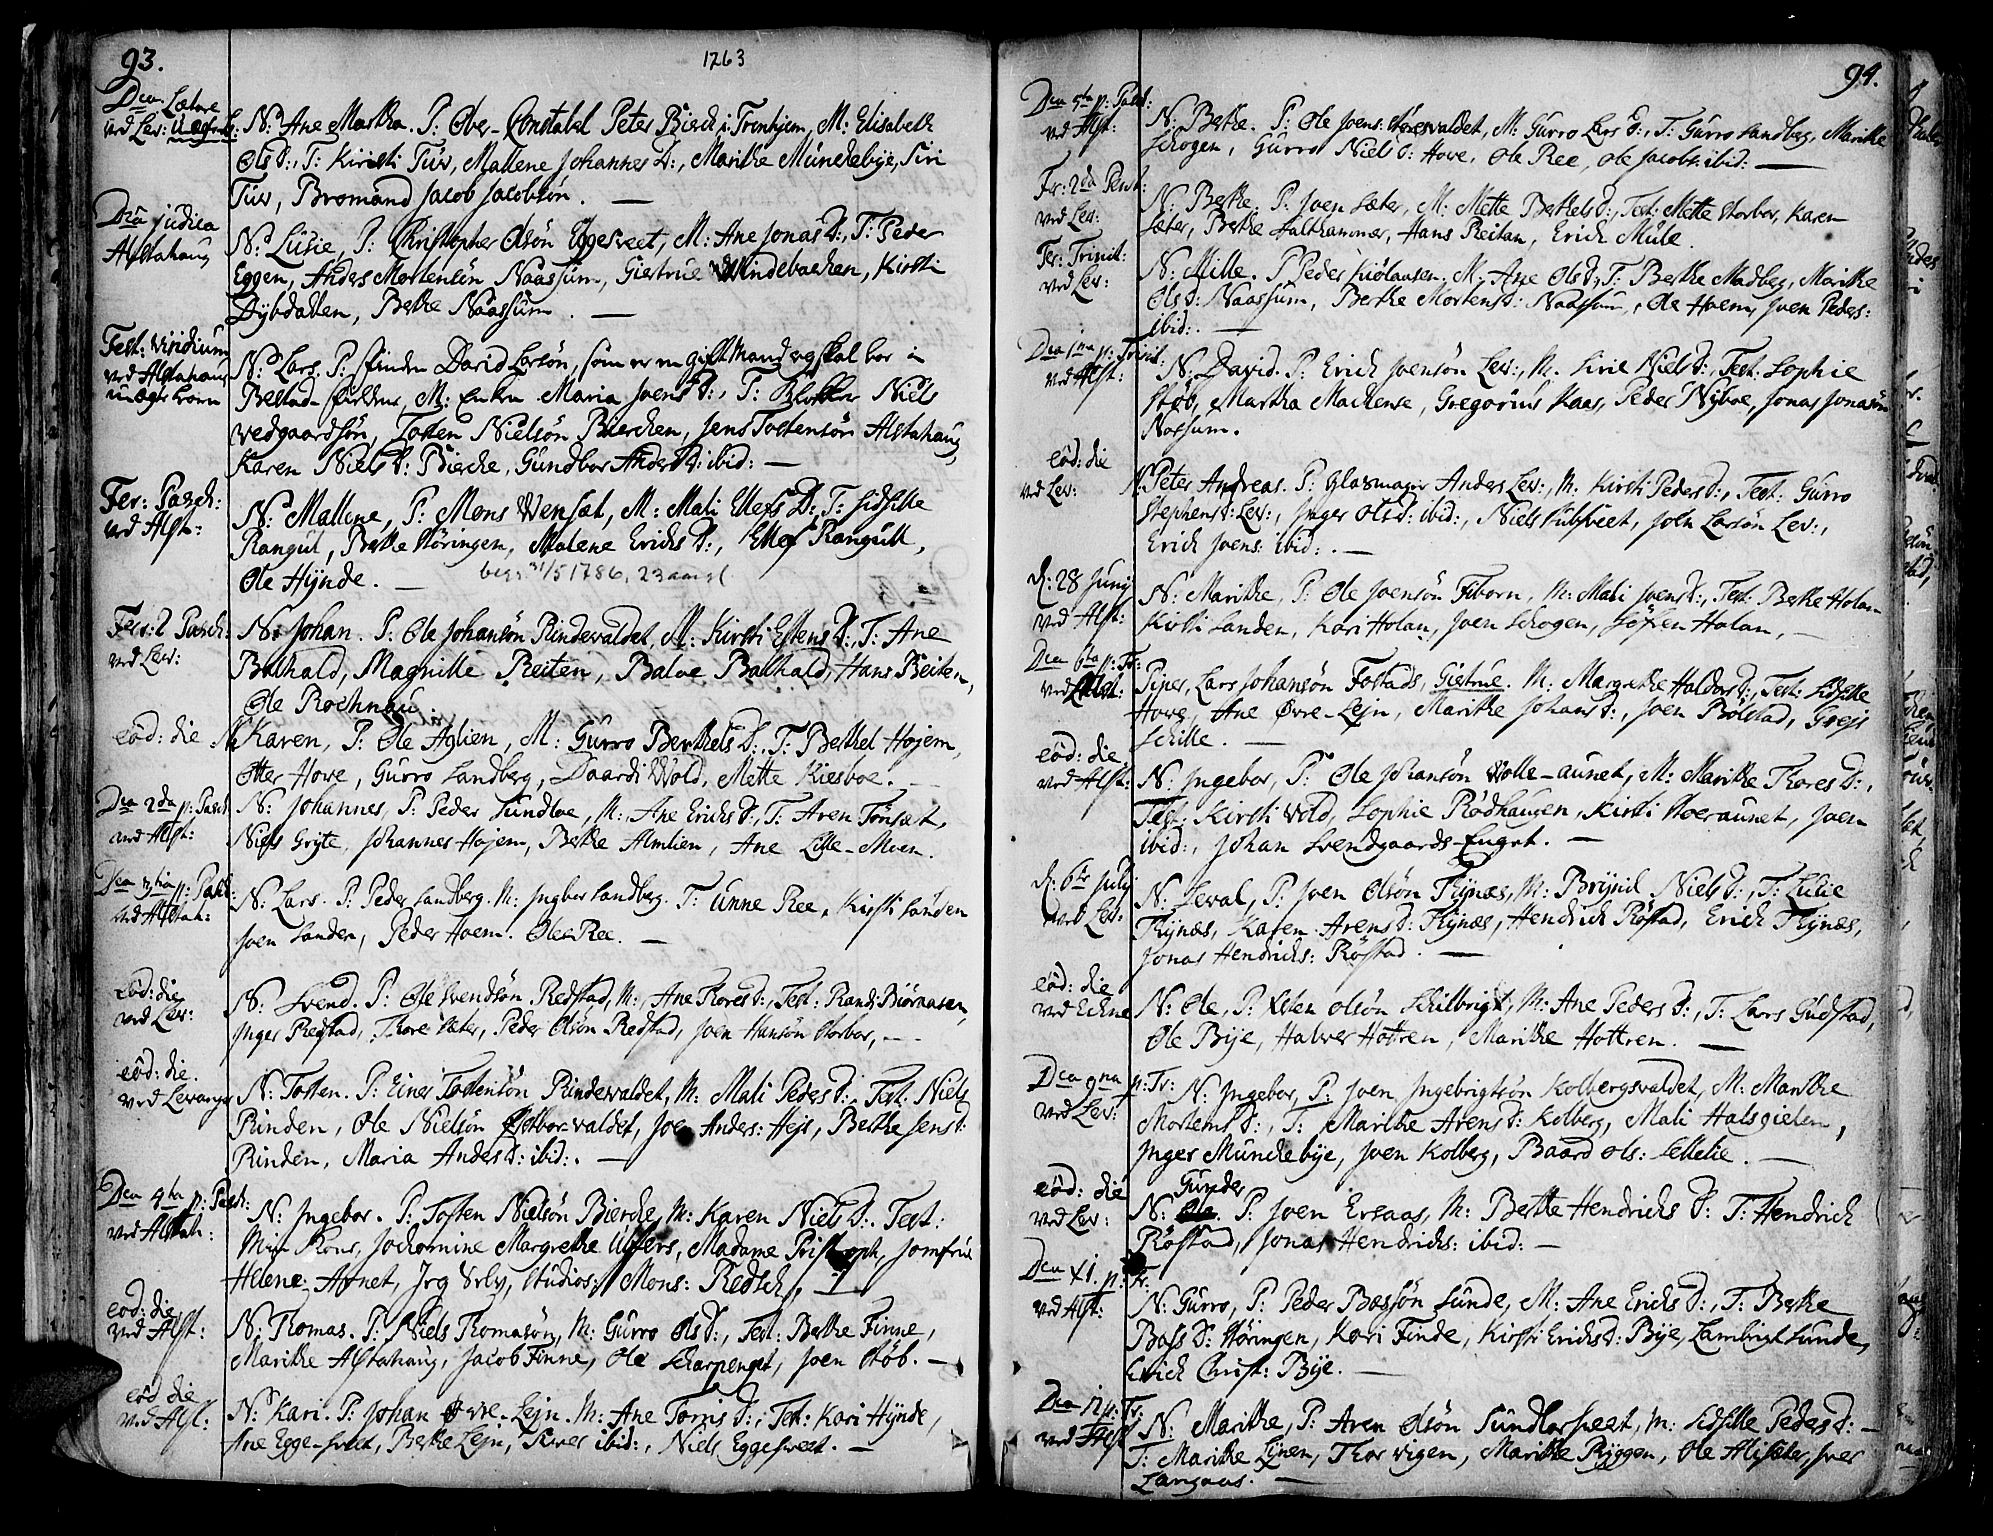 93.
1763
Dca Lætare
ved Lev:
N: Ane Martha. P: Over-Constabel Peter Birch i Tronhjem, M: Elisabeth
Ols D:, T: Kirsti Tuv, Mallene Johannes D:, Marithe Münckebye, Siri
Tuv, Bromand Jacob Jacobsön. —
Dca Judica
Alstahaug
N: Lusie, P: Christopher Olsön Eggesveet, M: Ane Jonas D:, T: Peder
Eggen, Anders Mortensön Naassum, Giertrue Windebacken, Kirsti
Dybdahlen, Berthe Naassum. —
Fest: Viridium
ved Alstahaug
N: Lars. P: Finden David Larsön, som er en gift Mand og skal boe i
Bestad-fierdung, M: Enken Maria Joens D:, T: Klocker Niels
Wedgaardsön, Tosten Nielsön Biercken, Jens Tostensön Alstahaug,
Karen Niels D: Bierche, Gundbor Anders D: ibid: —
Fer: Pasch:
ved Alst:
N: Mallene, P: Mons Wensæt, M: Mali Ellefs D: T: Sidselle
Rangul, Berthe Höringen, Malene Erichs D:, Ellef Rangull,
Ole Hynde. —
begr. 31/5 1786, 23 aar gl.
Fer: 2 Pasch:
ved Lev:
N: Johan. P: Ole Johansön Rindevaldet, M: Kirsti Estens D:, T: Ane
Balhald, Magnille Reiten, Baloe Balhald, Hans Reiten,
Ole Rochnau.
eöd: die
N: Karen, P: Ole Aglien, M: Gurro Berthels D:, T: Berthel Hojem,
Otter Howe, Gurro Landberg, Daardi Wold, Mette Kiesboe. —
Dca 2da p: Pasch
ved Alst:
N: Johannes, P: Peder Sundloe, M: Ane Erichs D:, T: Aren Tönsæt,
Niels Gryte, Johannes Hojem, Berthe Almlien, Ane Lille-Moen.
Dca 3tia p: Pasch:
ved Alstah:
N: Lars. P: Peder Landberg. M: Ingbor Landberg. T: Unne Ree, Kirsti Landen
Joen Landen, Peder Hoem. Ole Ree. —
eöd: die
ved Lev:
N: Svend. P: Ole Svendsön Redstad, M: Ane Thores D:, Test: Randi Biörnaasen,
Inger Redstad, Thore Sæter, Peder Olsön Redstad, Joen Hansön Storbor, —
eöd: die.
ved Levanger
N: Tosten. P: Einer Tostensön Rindevaldet, M: Mali Peders D:, Test: Niels
Rinden, Ole Nielsön Stobor-valdet, Joen Anders: Hejs, Berthe Jens D:
Rinden, Maria Anders D: ibid:. —
Dca 4ta p: Pasch:
ved Alstah:
N: Ingebor. P: Tosten Nielsön Bierche, M: Karen Niels D:. Test:
Min Kone, Jochomine Margrethe Ulfers, Madame Pristroph, Jomfrue
Helene Arnet, Jrg Urby, Studios: Mons: Redsch, —
eöd: die
ved Alst:
N: Thomas. P: Niels Thomasön, M: Gurro Ols D:, Test: Berthe Finne,
Marithe Alstahaug, Jacob Finne, Ole Scharpenget, Joen Stöb. —
eöd die
ved Alst:
N: Kari. P: Johan Øvre-Lejn. M: Ane Torris D:, Test: Kari Hynde,
Ane Egge-sveet, Berthe Lejn, Iver ibid:, Niels Eggesveet. —
94.
Dca 5ta p: Pasc:
ved Alst:
N: Berthe. P: Ole Joens: Howesvaldet, M: Gurro Lars D:, T: Gurro Landberg, Marithe
Schogen, Gurro Niels D: Howe, Ole Ree, Ole Jacobs: ibid: —
Fer: 2da Pent:
ved Lev:
N: Berthe, P: Joen Sæter, M: Mette Berthels D:, Test: Mette Storbor, Karen
Sæter, Berthe Salthammer, Hans Reitan, Erich Müle.
Fer: Trinit:
ved Lev:
N: Mille. P: Peder Kiölaasen, M: Ane Ols D:, T: Berthe Madberg, Marithe
Ols D: Naassum, Berthe Mortens D: Naassum, Ole Hoem, Joen Peders:
ibid:. —
Dca 1ma p: Trinit:
ved Alst:
N: David. P: Erich Joensön Lev:, M: Sirie Niels D:, Test: Sophie
Stöb, Martha Machense, Gregorius Kaas, Peder Nyboe, Jonas Jonasön
Nossum.
eöd: die
ved Lev:
N: Peter Andreas. P: Glasmager Anders Lev:, M: Kirsti Peders D:, Test: Gurro
Stephens D: Lev:, Inger Ols D: ibid:, Niels Subsveet, Joen Larsön Lev:,
Erich Joens: ibid:. —
d: 28 Junij
ved Alst:
N: Marithe, P: Ole Joensön Fiborn, M: Mali Joens D:, Test: Berthe Holan
Kirsti Landen, Kari Holan, Joen Schogen, Söfren Holan, —
Dca 6ta p: Tr:
ved Alst:
Piper, Lars Johansön Fostads, Giertrue. M: Margrethe Haldors D:, Test: Sidselle
Howe, Ane Øvre-Lejn, Marithe Johans D:, Joen Bölstad, Grejs
Schille. —
eöd: die
ved Alst:
N: Ingebor, P: Ole Johansön Wolle-aunet, M: Marithe Thores D:,
Test: Kirsti Wold, Sophie Rödhaugen, Kirsti Hoeraunet, Joen
ibid:, Johan Svendgaards-Enget. —
d: 6te Julij
ved Lev:
N: Seval, P: Joen Olsön Thynæs, M: Brynil Niels D:, T: Lusie
Thynæs, Karen Arens D: Thynæs, Hendrich Röstad, Erich Thynæs,
Jonas Hendrichs: Röstad. —
eöd: die
ved Eckne
N: Ole, P: Esten Olsön Schilbrigt, M: Ane Peders D:, T: Lars Gudstad,
Ole Bye, Halver Hottren, Marithe Hottren. —
Dca 9na p: Tr:
ved Lev:
N: Ingebor, P: Joen Ingebrigtsön Kolbergsvaldet, M: Marithe
Mortens D:, T: Marithe Arens D: Kolberg, Mali Halsgielen,
Inger Münckebye, Joen Kolberg, Baard Ols: Lellelie. —
eöd: die
ved Lev:
Gunder
N: Ole. P: Joen Ersaas, M: Berthe Hendrichs D: T: Hendrich
Röstad, Jonas Hendrichs: ibid: —
Dca XI. p: Tr.
ved Alst:
N: Gurro, P: Peder Bassön Sunde, M: Ane Erichs D:, T: Berthe
Bass D: Höringen, Kari Finde, Kirsti Erichs D: Bye, Lambrigt Sunde,
Erich Christ: Bye. —
Dca 12 p: Tr.
ved Alst
N: Marithe, P: Aren Olsön Sundlosveet, M: Sidselle Peders D: —
T: Marithe Lynen, Thor Vigen, Marithe Ryggen, Ole Alsæter, Iver
Langaas. —